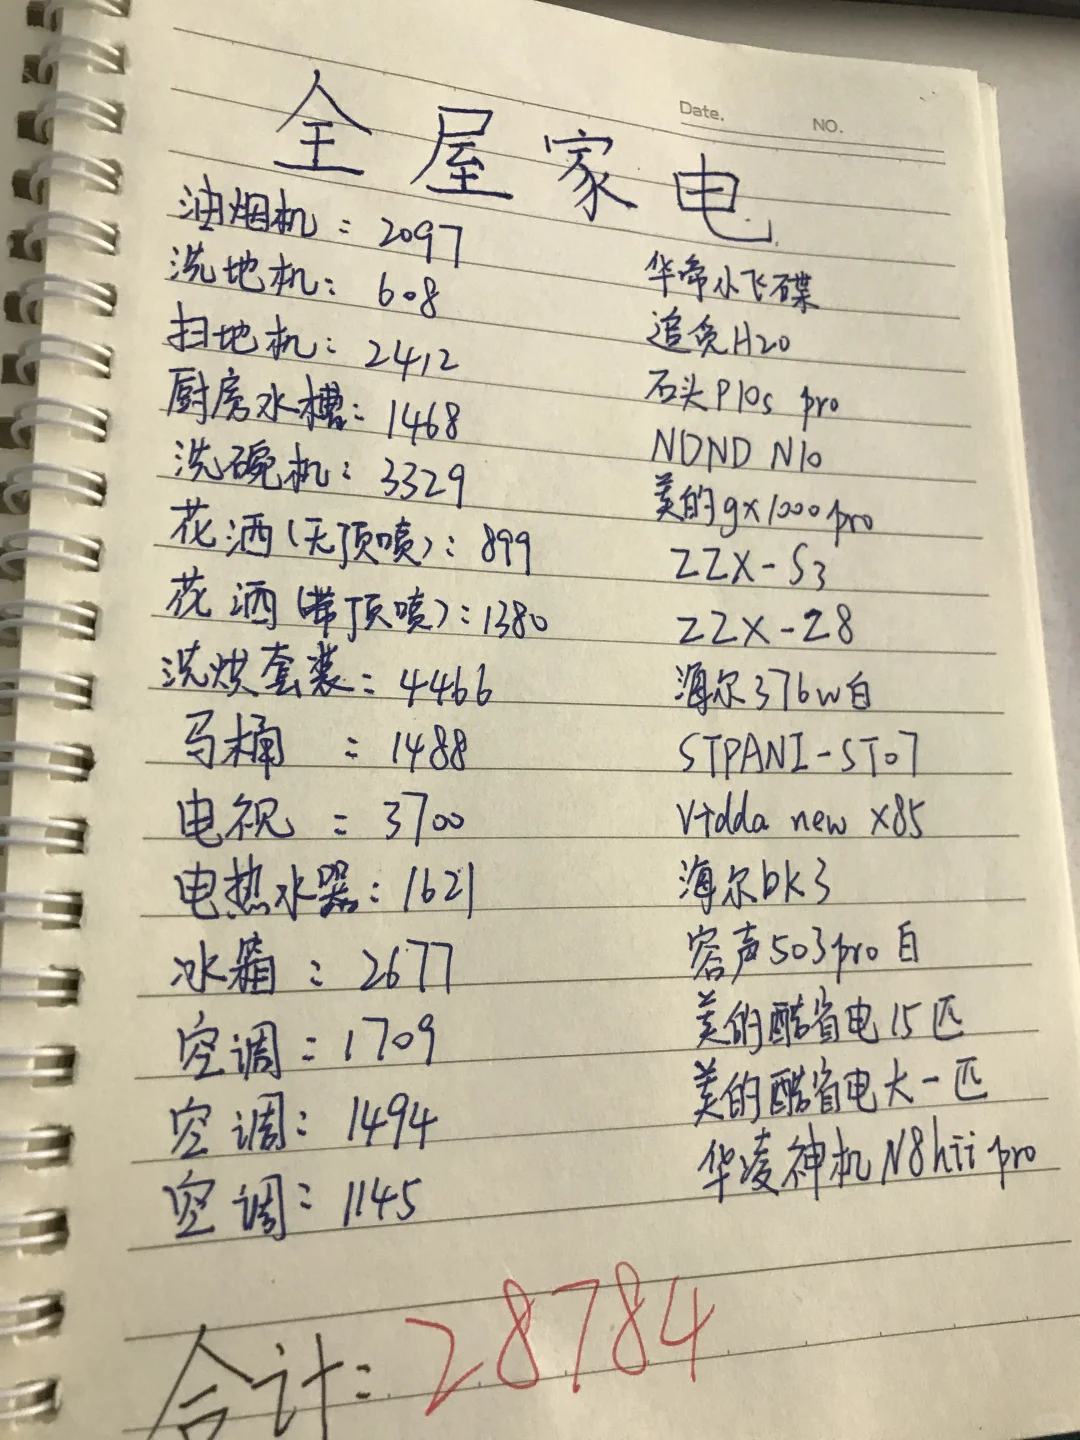 Date.
NO.
全屋家电
油烟机：2097 华帝小飞碟
洗地机：608 追觅H20
扫地机：2412 石头P10s pro
厨房水槽：1468 NDND N10
洗碗机：3329 美的gx1000pro
花洒(无顶喷)：899 ZZX-S3
花洒(带顶喷)：1380 ZZX-Z8
洗烘套装：4466 海尔376w白
马桶：1488 STPANI-ST07
电视：3700 Vidda new X85
电热水器：1621 海尔bk3
冰箱：2677 容声503pro白
空调：1709 美的酷省电15匹
空调：1494 美的酷省电大一匹
空调：1145 华凌神机N8hii pro
合计：28784